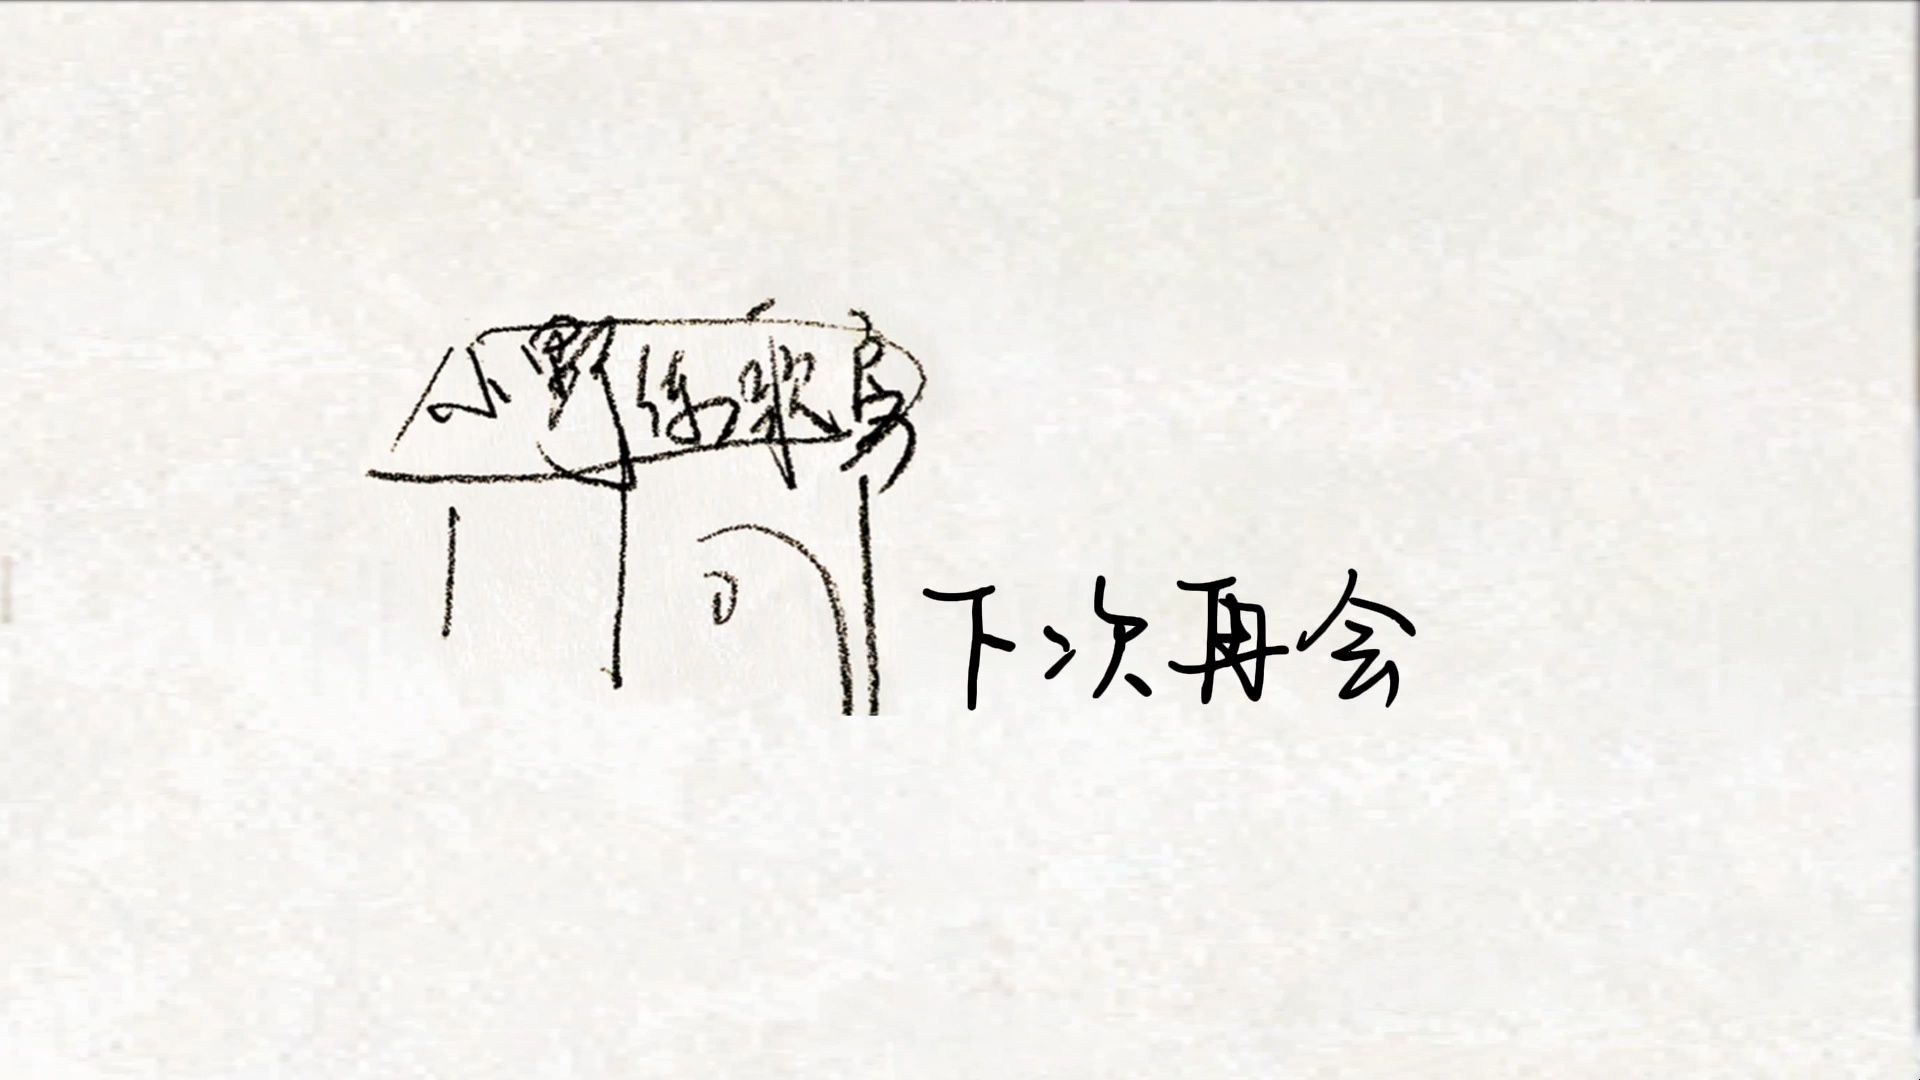 小野练歌房
下次再会